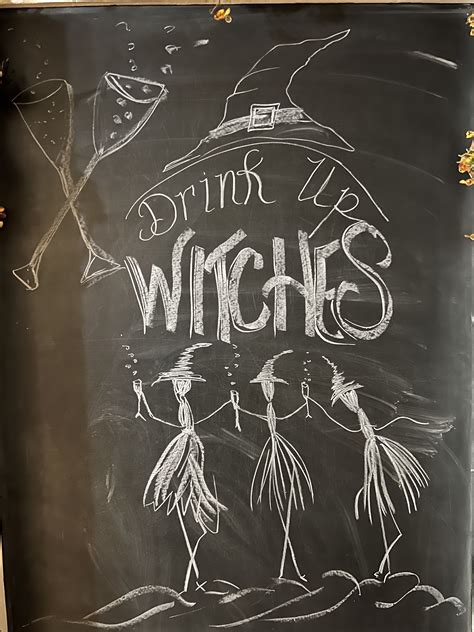 Drink Up
WITCHES